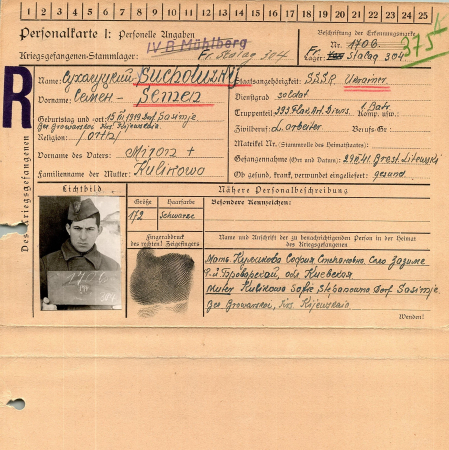 1 2 3 4 5 6 7 8 9 10 11 12 13 14 15 16 17 18 19 20 21 22 23 24 25
Personalkarte I: Personelle Angaben
Beschriftung der Erkennungsmarke
IV B Mühlberg
Nr. 1706
375
Kriegsgefangenen-Stammlager: Fr. Stalag 304
Lager: Fr. Stalag 304
Des Kriegsgefangenen
R
Name: Сухолуцкий Sucholuzkij
Staatsangehörigkeit: S.S.S.R. Ukrainer
Vorname: Семен - Semen
Dienstgrad: soldat
Geburtstag und -ort: 15. 1919 Dorf
Truppenteil: 1. Batr. Komp. usw.:
Religion:
Zivilberuf: L. arbeiter Berufs-Gr.:
Matrikel Nr. (Stammrolle des Heimatstaates):
Vorname des Vaters: Miron +
Gefangennahme (Ort und Datum): 41
Familienname der Mutter: Kulikowa
Ob gesund, krank, verwundet eingeliefert: gesund
Lichtbild
Nähere Personalbeschreibung
Größe Haarfarbe Besondere Kennzeichen:
172 Schwarze
Fingerabdruck des rechten! Zeigefingers
Name und Anschrift der zu benachrichtigenden Person in der Heimat des Kriegsgefangenen
Мать Куликова София Степановна Село Зазиме
Р-н Броварской обл Киевская
Muter Kulikowa Sofia Stepanowna Dorf Sasimje
Wenden!